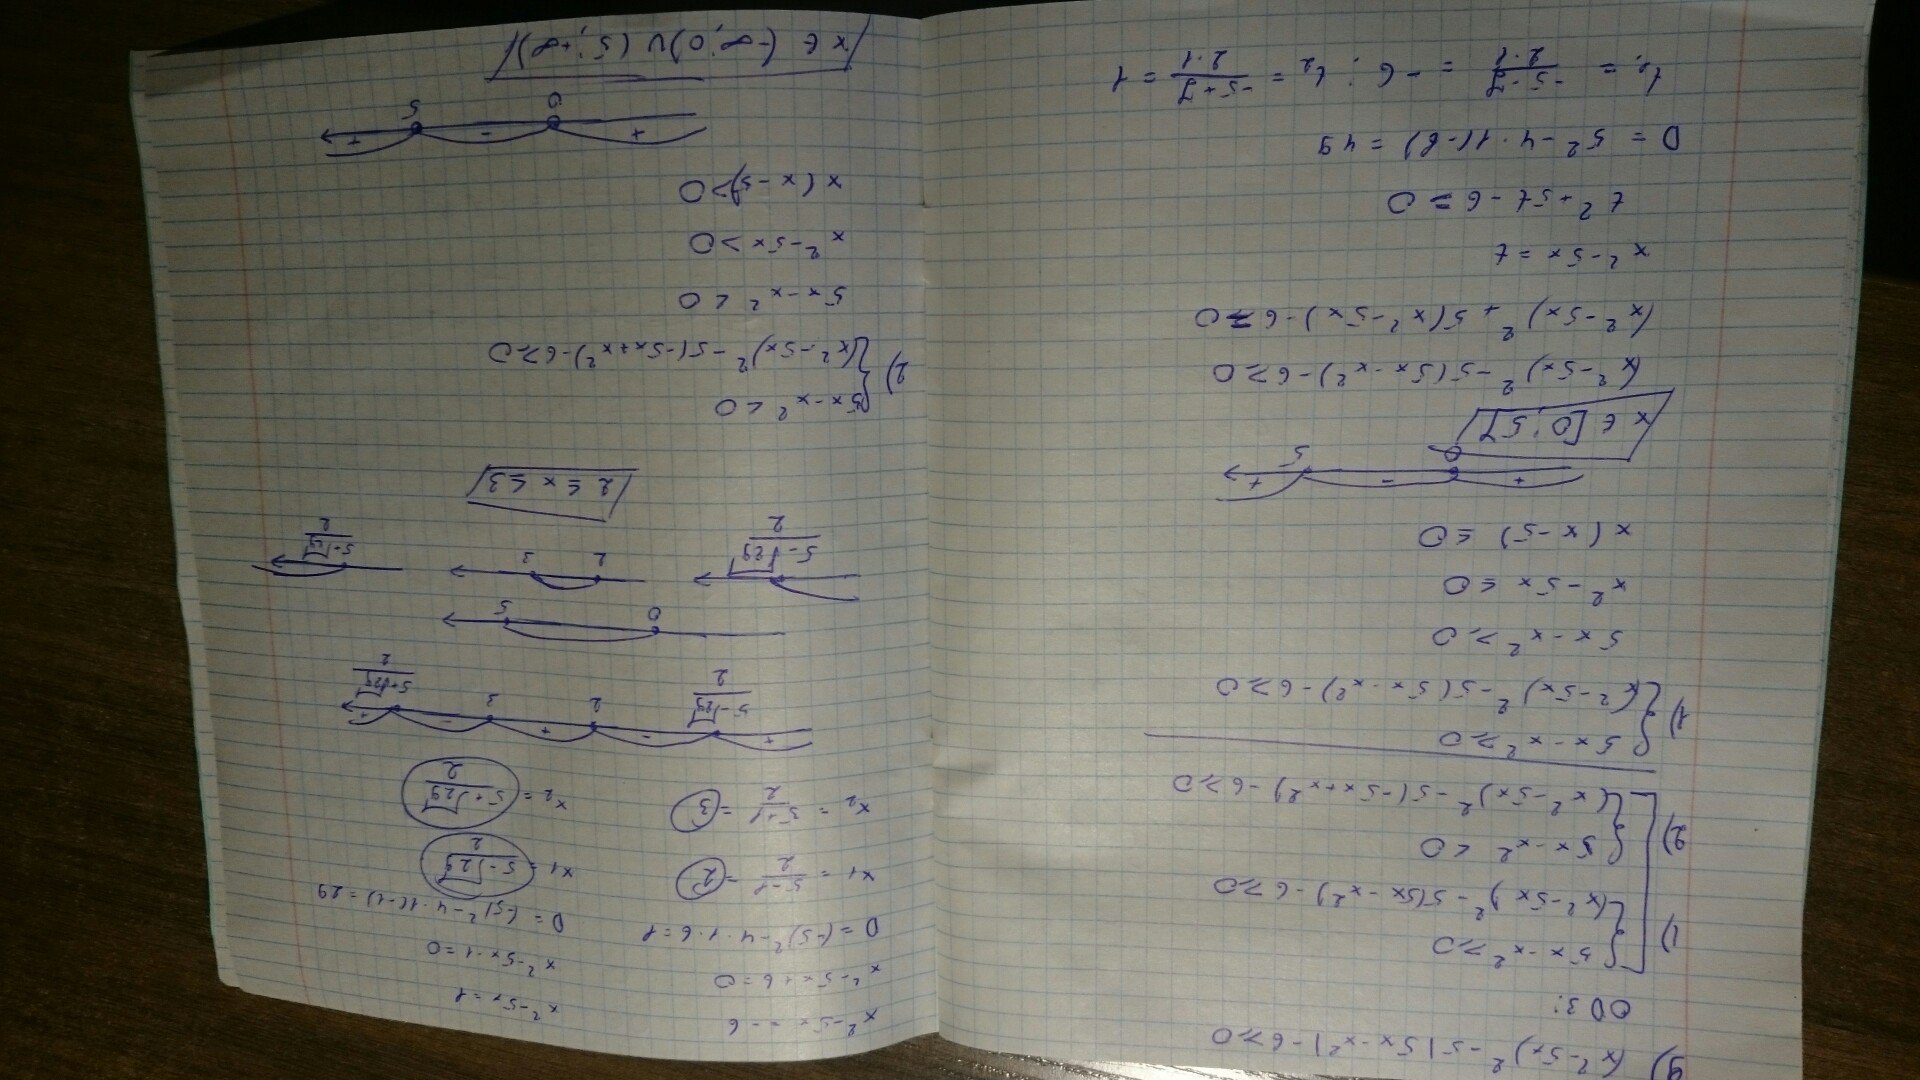 9) (x² - 5x)² - 5|5x - x²| - 6 ≥ 0
ОДЗ:
1) { 5x - x² ≥ 0
(x² - 5x)² - 5(5x - x²) - 6 ≥ 0
2) { 5x - x² < 0
(x² - 5x)² - 5(-5x + x²) - 6 ≥ 0
1) { 5x - x² ≥ 0
(x² - 5x)² - 5(5x - x²) - 6 ≥ 0
5x - x² ≥ 0
x² - 5x ≤ 0
x(x - 5) ≤ 0
+ - +
0 5
x ∈ [0; 5]
(x² - 5x)² - 5(5x - x²) - 6 ≥ 0
(x² - 5x)² + 5(x² - 5x) - 6 ≥ 0
x² - 5x = t
t² + 5t - 6 = 0
D = 5² - 4 · 1(-6) = 49
t₁ = (-5-7)/(2·1) = -6; t₂ = (-5+7)/(2·1) = 1
x² - 5x = -6
x² - 5x + 6 = 0
D = (-5)² - 4 · 1 · 6 = 1
x₁ = (5-1)/2 = 2
x₂ = (5+1)/2 = 3
x² - 5x = 1
x² - 5x - 1 = 0
D = (-5)² - 4 · 1(-1) = 29
x₁ = (5-√29)/2
x₂ = (5+√29)/2
+ - + - +
(5-√29)/2 2 3 (5+√29)/2
0 5
(5-√29)/2 2 3 (5-√29)/2
2 ≤ x ≤ 3
2) { 5x - x² < 0
(x² - 5x)² - 5(-5x + x²) - 6 ≥ 0
5x - x² < 0
x² - 5x > 0
x(x - 5) > 0
+ - +
0 5
x ∈ (-∞; 0) ∪ (5; +∞)